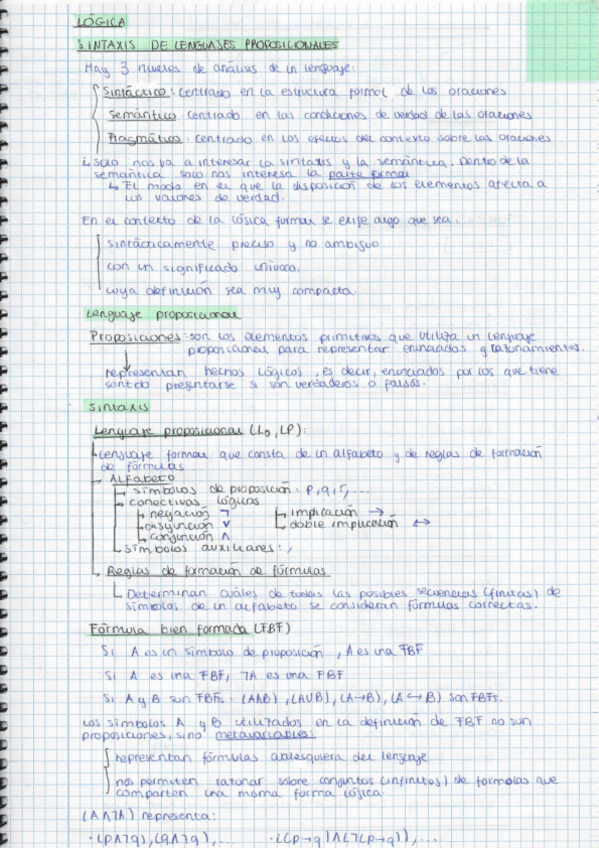 LÓGICA
SINTAXIS DE LENGUAJES PROPOSICIONALES
Hay 3 niveles de análisis de un lenguaje:
Sintáctico: centrado en la estructura formal de las oraciones
Semántico: centrado en las condiciones de verdad de las oraciones
Pragmático: centrado en los efectos del contexto sobre las oraciones
↳ Solo nos va a interesar la sintaxis y la semántica. Dentro de la
semántica solo nos interesa la parte formal
↳ El modo en el que la disposición de los elementos afecta a
los valores de verdad.
En el contexto de la lógica formal se exige algo que sea:
sintácticamente preciso y no ambiguo
con un significado unívoco,
cuya definición sea muy compacta.
Lenguaje proposicional
Proposiciones: son los elementos primitivos que utiliza un lenguaje
proposicional para representar enunciados y razonamientos.
representan hechos lógicos, es decir, enunciados por los que tiene
sentido preguntarse si son verdaderos o falsos.
Sintaxis
Lenguaje proposicional (L₀, LP):
Lenguaje formal que consta de un alfabeto y de reglas de formación
de fórmulas
ALFABETO
símbolos de proposición: p, q, r, ...
conectivas lógicas
negación ¬ implicación →
disyunción ∨ doble implicación ↔
conjunción ∧
símbolos auxiliares: ,
Reglas de formación de fórmulas
Determinan cuáles de todas las posibles secuencias (finitas) de
símbolos de un alfabeto se consideran fórmulas correctas.
Fórmula bien formada (FBF)
Si A es un símbolo de proposición, A es una FBF
Si A es una FBF, ¬A es una FBF
Si A y B son FBFs: (A∧B), (A∨B), (A→B), (A↔B) son FBFs.
Los símbolos A y B utilizados en la definición de FBF no son
proposiciones, sino metavariables:
representan fórmulas cualesquiera del lenguaje
nos permiten razonar sobre conjuntos (infinitos) de fórmulas que
comparten una misma forma lógica.
(A∧¬A) representa:
· (p∧¬q), (q∧¬q), ... · ((p→q)∧(¬(p→q)), ...